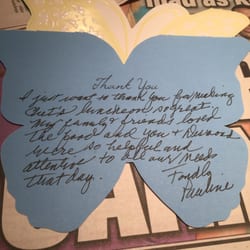 Thank You
I just want to thank you for making
luncheon so great
My family & friends loved
the food and you &
were so helpful and
attention to all our needs
that day.
Fondly
Pauline